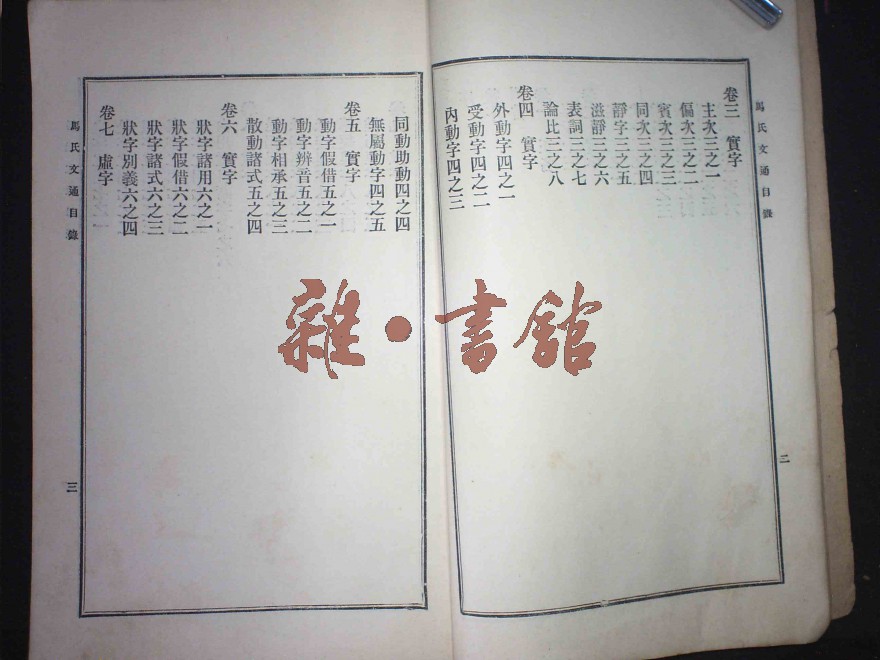 馬氏文通目錄
卷三　實字
主次三之一
偏次三之二
賓次三之三
同次三之四
靜字三之五
滋靜三之六
表詞三之七
論比三之八
卷四　實字
外動字四之一
受動字四之二
內動字四之三
二
同動助動四之四
無屬動字四之五
卷五　實字
動字假借五之一
動字辨音五之二
動字相承五之三
散動諸式五之四
卷六　實字
狀字諸用六之一
狀字假借六之二
狀字諸式六之三
狀字別義六之四
卷七　虛字
馬氏文通目錄
三
雜·書館